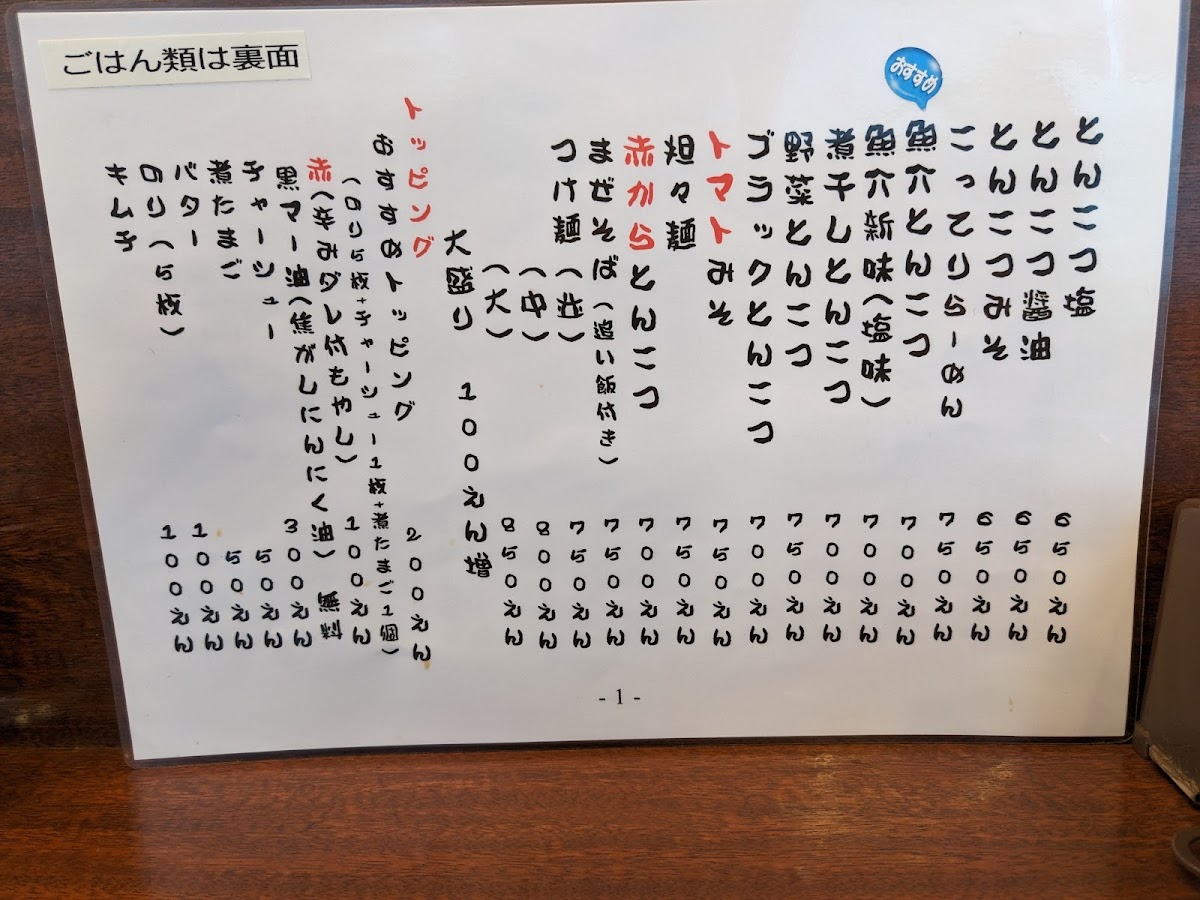 ごはん類は裏面
おすすめ
とんこつ塩 650えん
とんこつ醤油 650えん
とんこつみそ 650えん
こってりらーめん 750えん
魚介とんこつ 700えん
魚介新味(塩味) 700えん
煮干しとんこつ 700えん
野菜とんこつ 750えん
ブラックとんこつ 700えん
トマトみそ 750えん
坦々麺 750えん
赤からとんこつ 700えん
まぜそば(追い飯付き) 750えん
つけ麺(並) 750えん
(中) 800えん
(大) 850えん
大盛り 100えん増
トッピング
おすすめトッピング 200えん
(のり5枚+チャーシュー1枚+煮たまご1個)
赤(辛みダレ付もやし) 100えん
黒マー油(焦がしにんにく油) 無料
チャーシュー 300えん
煮たまご 50えん
バター 50えん
のり(5枚) 100えん
キムチ 100えん
- 1 -